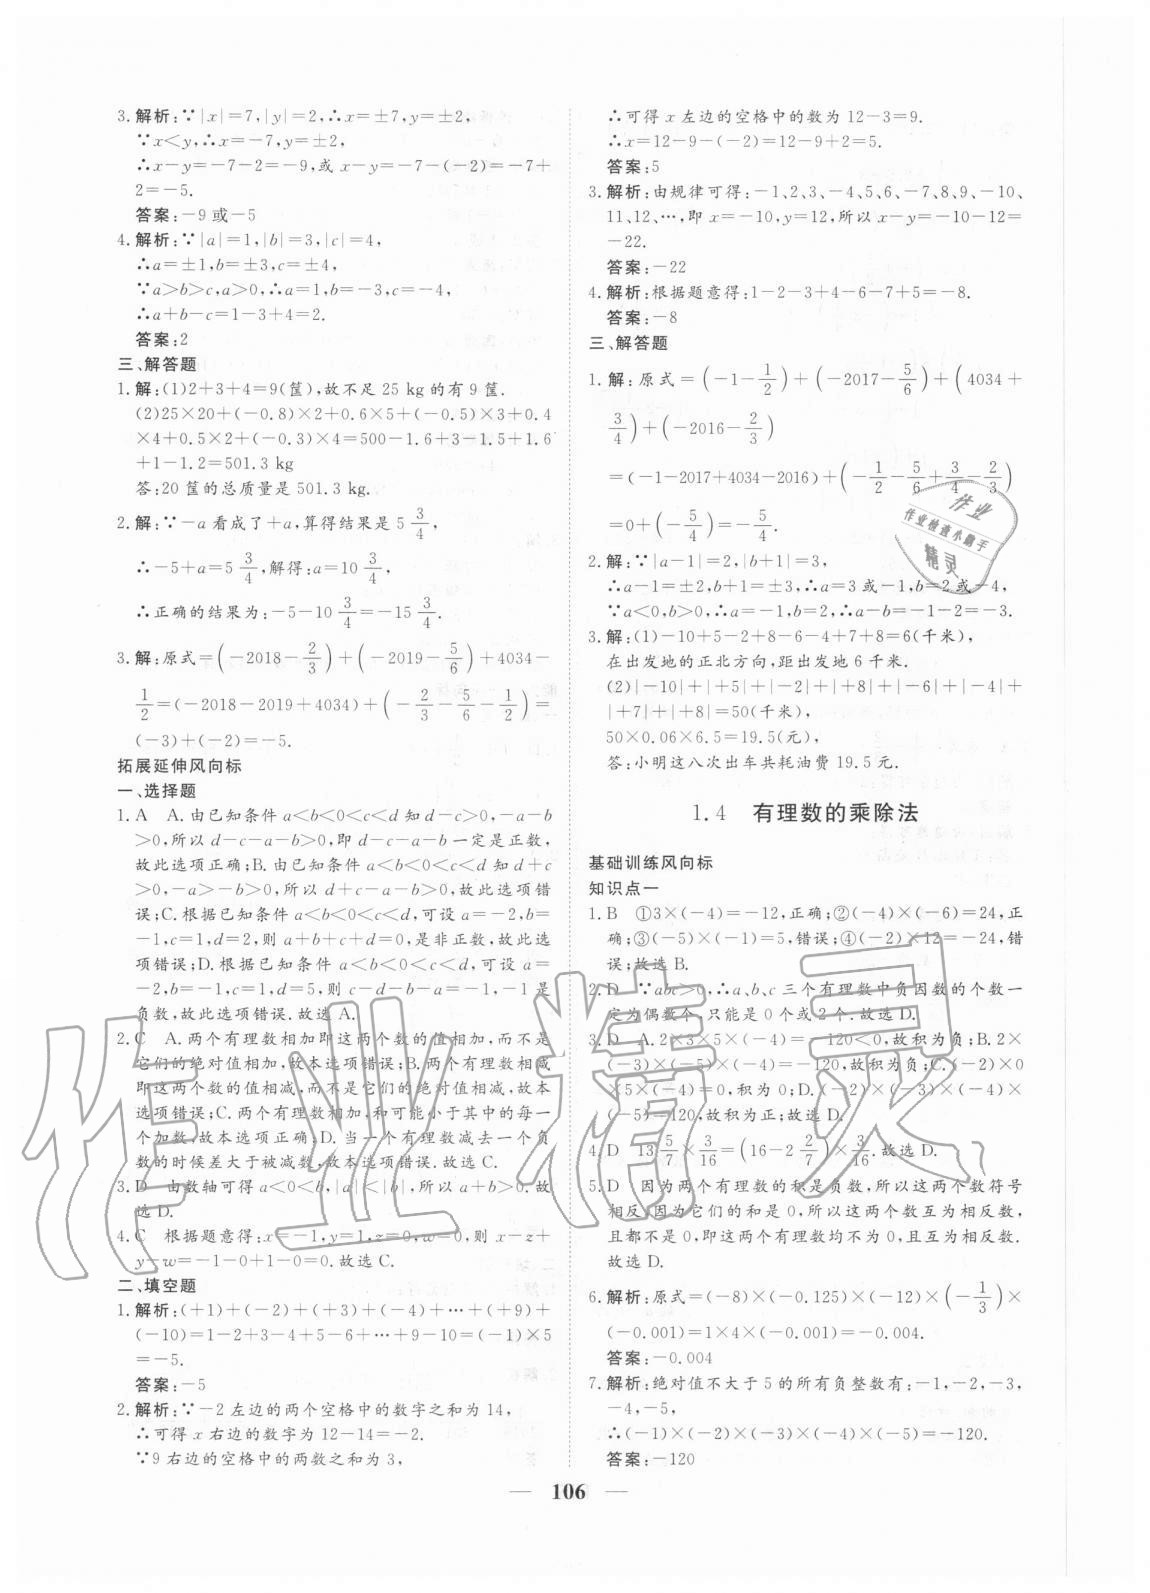 3.解析:∵|x|=7,|y|=2,∴x=±7,y=±2,
∵x<y,∴x=-7,y=±2,
∴x-y=-7-2=-9,或 x-y=-7-(-2)=-7+
2=-5.
答案:-9或-5
4.解析:∵|a|=1,|b|=3,|c|=4,
∴a=±1,b=±3,c=±4,
∵a>b>c,a>0,∴a=1,b=-3,c=-4,
∴a+b-c=1-3+4=2.
答案:2
三、解答题
1.解:(1)2+3+4=9(筐),故不足 25 kg 的有 9 筐.
(2)25×20+(-0.8)×2+0.6×5+(-0.5)×3+0.4
×4+0.5×2+(-0.3)×4=500-1.6+3-1.5+1.6
+1-1.2=501.3 kg
答:20 筐的总质量是 501.3 kg.
2.解:∵-a 看成了+a,算得结果是 5 3/4,
∴-5+a=5 3/4,解得:a=10 3/4,
∴正确的结果为:-5-10 3/4=-15 3/4.
3.解:原式=(-2018-2/3)+(-2019-5/6)+4034-
1/2=(-2018-2019+4034)+(-2/3-5/6-1/2)=
(-3)+(-2)=-5.
拓展延伸风向标
一、选择题
1.A A.由已知条件 a<b<0<c<d 知 d-c>0,-a-b
>0,所以 d-c-a-b>0,即 d-c-a-b 一定是正数,
故此选项正确;B.由已知条件 a<b<0<c<d 知 d+c
>0,-a>-b>0,所以 d+c-a-b>0,故此选项错
误;C.根据已知条件 a<b<0<c<d,可设 a=-2,b=
-1,c=1,d=2,则 a+b+c+d=0,是非正数,故此选
项错误;D.根据已知条件 a<b<0<c<d,可设 a=
-2,b=-1,c=1,d=5,则 c-d-b-a=-1,-1 是
负数,故此选项错误.故选 A.
2.C A.两个有理数相加即这两个数的值相加,而不是
它们的绝对值相加,故本选项错误;B.两个有理数相减
即这两个数的值相减,而不是它们的绝对值相减,故本
选项错误;C.两个有理数相加,和可能小于其中的每一
个加数,故本选项正确;D.当一个有理数减去一个负
数的时候差大于被减数,故本选项错误.故选 C.
3.D 由数轴可得 a<0<b,|a|<|b|,所以 a+b>0.故
选 D.
4.C 根据题意得:x=-1,y=1,z=0,w=0,则 x-z+
y-w=-1-0+1-0=0.故选 C.
二、填空题
1.解析:(+1)+(-2)+(+3)+(-4)+…+(+9)+
(-10)=1-2+3-4+5-6+…+9-10=(-1)×5
=-5.
答案:-5
2.解析:∵-2 左边的两个空格中的数字之和为 14,
∴可得 x 右边的数字为 12-14=-2.
∵9 右边的空格中的两数之和为 3,
∴可得 x 左边的空格中的数为 12-3=9.
∴x=12-9-(-2)=12-9+2=5.
答案:5
3.解析:由规律可得:-1、2、3、-4、5、6、-7、8、9、-10、
11、12、…,即 x=-10,y=12,所以 x-y=-10-12=
-22.
答案:-22
4.解析:根据题意得:1-2-3+4-6-7+5=-8.
答案:-8
三、解答题
1.解:原式=(-1-1/2)+(-2017-5/6)+(4034+
3/4)+(-2016-2/3)
=(-1-2017+4034-2016)+(-1/2-5/6+3/4-2/3)
=0+(-5/4)=-5/4.
2.解:∵|a-1|=2,|b+1|=3,
∴a-1=±2,b+1=±3,∴a=3 或-1,b=2 或-4,
∵a<0,b>0,∴a=-1,b=2,∴a-b=-1-2=-3.
3.解:(1)-10+5-2+8-6-4+7+8=6(千米),
在出发地的正北方向,距出发地 6 千米.
(2)|-10|+|+5|+|-2|+|+8|+|-6|+|-4|+
|+7|+|+8|=50(千米),
50×0.06×6.5=19.5(元),
答:小明这八次出车共耗油费 19.5 元.
1.4 有理数的乘除法
基础训练风向标
知识点一
1.B ①3×(-4)=-12,正确;②(-4)×(-6)=24,正
确;③(-5)×(-1)=5,错误;④(-2)×12=-24,错
误;故选 B.
2.D ∵abc>0,∴a、b、c 三个有理数中负因数的个数一
定为偶数个,只能是 0 个或 2 个.故选 D.
3.D A.2×3×5×(-4)=-120<0,故积为负;B.2×
(-3)×(-5)×(-4)=-120,故积为负;C.(-2)×0
×5×(-4)=0,积为 0;D.(-2)×(-3)×(-4)×
(-5)=120,故积为正;故选 D.
4.D 13 5/7×3/16=(16-2 2/7)×3/16.故选 D.
5.D 因为两个有理数的积是负数,所以这两个数符号
相反,因为它们的和是 0,所以这两个数互为相反数,
且都不是 0,即这两个有理数均不为 0,且互为相反数.
故选 D.
6.解析:原式=(-8)×(-0.125)×(-12)×(-1/3)×
(-0.001)=1×4×(-0.001)=-0.004.
答案:-0.004
7.解析:绝对值不大于 5 的所有负整数有:-1,-2,-3,
-4,-5,
∴(-1)×(-2)×(-3)×(-4)×(-5)=-120.
答案:-120
106
作业精灵
作业
作业检查小助手
精灵